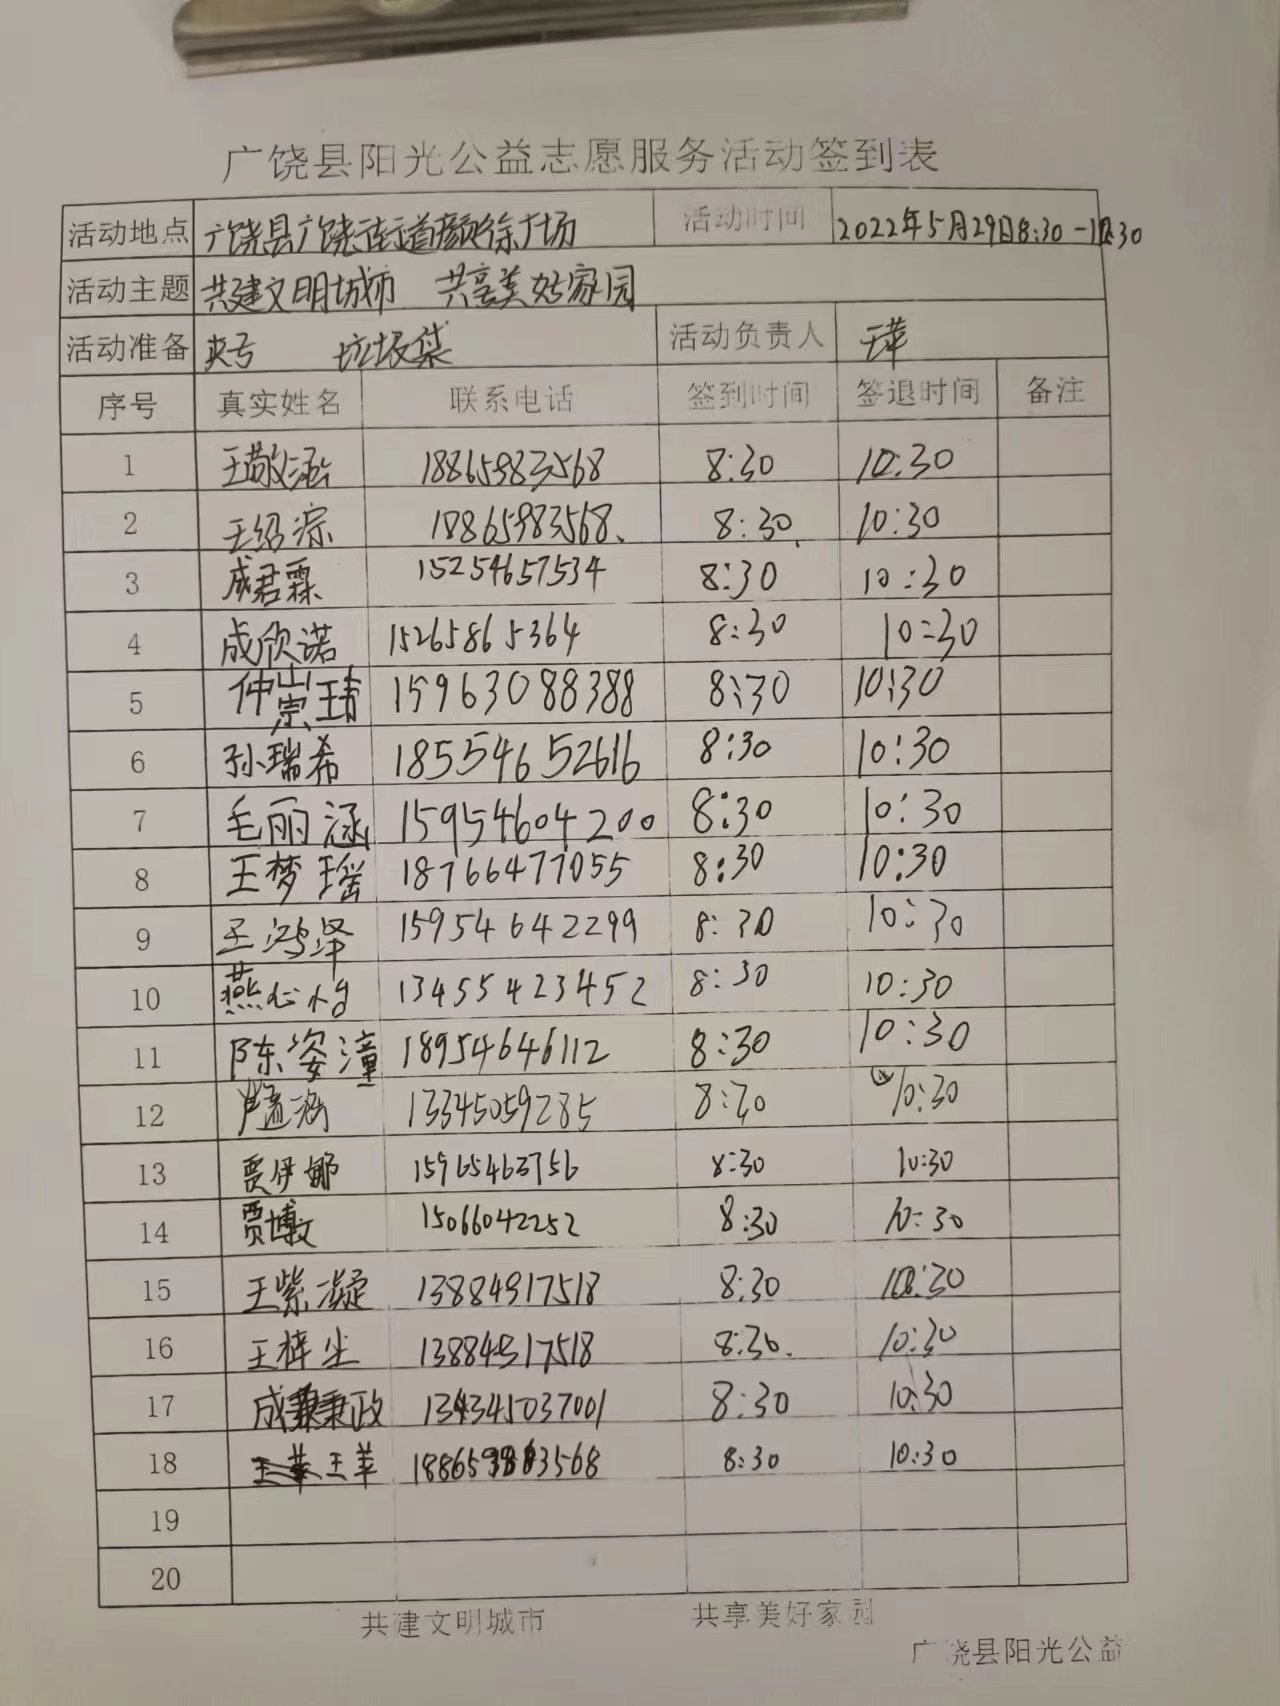 广饶县阳光公益志愿服务活动签到表
活动地点 广饶县广饶街道颜徐广场 活动时间 2022年5月29日8:30-10:30
活动主题 共建文明城市 共享美好家园
活动准备 夹子 垃圾袋 活动负责人 王苹
序号 真实姓名 联系电话 签到时间 签退时间 备注
1 王敬涵 18865983568 8:30 10:30
2 王绍淙 18865983568 8:30 10:30
3 成君霖 15254657534 8:30 10:30
4 成欣诺 15265865364 8:30 10:30
5 仲崇玮 15963088388 8:30 10:30
6 孙瑞希 18554652616 8:30 10:30
7 毛丽涵 15954604200 8:30 10:30
8 王梦瑶 18766477055 8:30 10:30
9 王鸿泽 15954642299 8:30 10:30
10 燕心怡 13455423452 8:30 10:30
11 陈姿潼 18954646112 8:30 10:30
12 13345059285 8:30 10:30
13 贾伊娜 15965463756 8:30 10:30
14 贾博文 15066042252 8:30 10:30
15 王紫凝 13884917518 8:30 10:30
16 王梓尘 13884917518 8:30 10:30
17 成秉政 8:30 10:30
18 王苹 18865983568 8:30 10:30
19
20
共建文明城市 共享美好家园
广饶县阳光公益